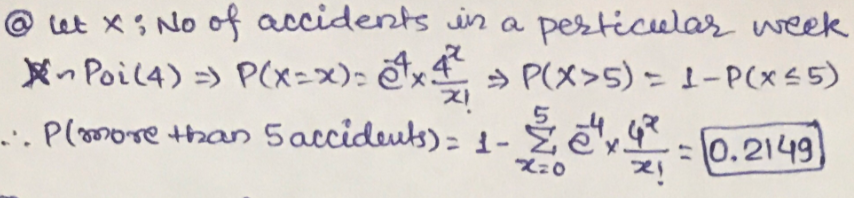 @ Let X : No of accidents in a perticular week
X ~ Poi(4) ⇒ P(X=x) = e⁻⁴ × 4ˣ/x! ⇒ P(X>5) = 1-P(X≤5)
∴ P(more than 5 accidents) = 1 - Σ_{x=0}^{5} e⁻⁴ × 4ˣ/x! = 0.2149